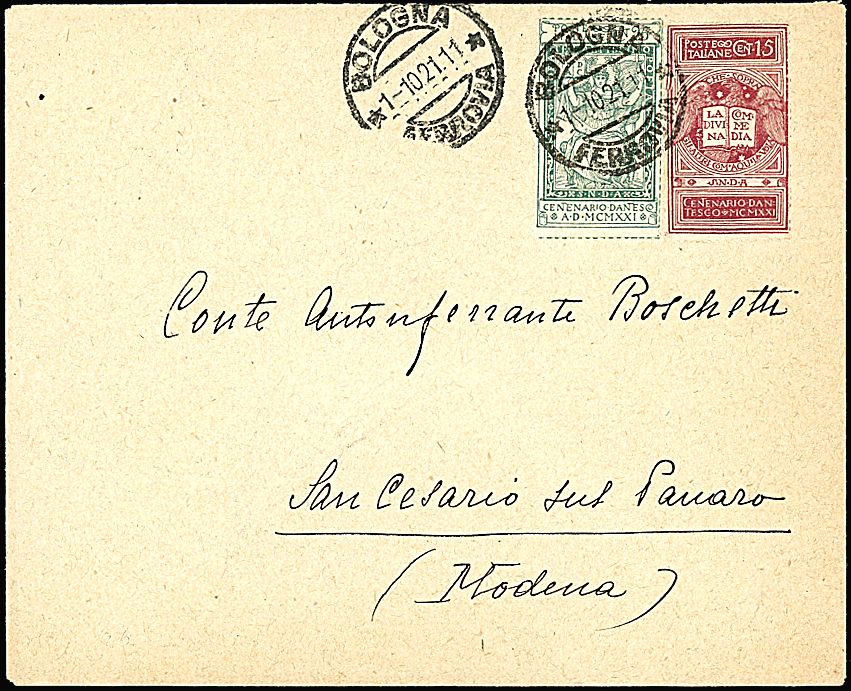 BOLOGNA
1-10 21.11
FERROVIA
BOLOGNA
1-10 21.11
FERROVIA
S·N·D·A
CENENARIO·DANESCO
A·D·MCMXXI
POSTE
ITALIANE CENT·15
CHE SOPRA
LA DIVINA COMMEDIA
COM'AQUILA VOLA
S·N·D·A
CENENARIO·DAN
TESCO·MCMXXI
Conte Antonferrante Boschetti
San Cesario sul Panaro
(Modena)